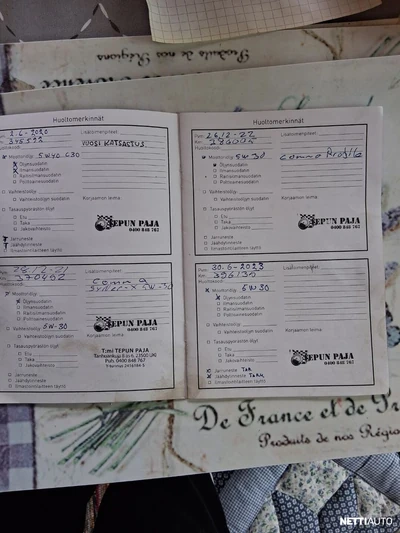 Produits de nos Régions
Huoltomerkinnät
2.6-2020
Lisätoimenpiteet
345592
VUOSI KATSASTUS
Moottoriöljy 5W40 C30
Öljynsuodatin
Ilmansuodatin
Raitisilmansuodatin
Polttoainesuodatin
Vaihteistoöljy
Vaihteistoöljyn suodatin
Korjaamon leima
Tasauspyörästön öljyt
Etu
Taka
Jakovaihteisto
TEPUN PAJA
0400 848 767
Jarruneste
Jäähdytinneste
Ilmastointilaitteen täyttö
Lisätoimenpiteet
370402
Comma
5W-30
Moottoriöljy
Öljynsuodatin
Ilmansuodatin
Raitisilmansuodatin
Polttoainesuodatin
Vaihteistoöljy 5W-30
Vaihteistoöljyn suodatin
Korjaamon leima
Tasauspyörästön öljyt
Etu
Taka
Jakovaihteisto
TEPUN PAJA
0400 848 767
Tmi TEPUN PAJA
Puh. 0400 848 767
Jarruneste
Jäähdytinneste
Ilmastointilaitteen täyttö
Huoltomerkinnät
Pvm 26.12-22
Lisätoimenpiteet
Moottoriöljy 5W30
Comma
Öljynsuodatin
Ilmansuodatin
Raitisilmansuodatin
Polttoainesuodatin
Vaihteistoöljy
Vaihteistoöljyn suodatin
Korjaamon leima
Tasauspyörästön öljyt
Etu
Taka
Jakovaihteisto
TEPUN PAJA
0400 848 767
Jarruneste
Jäähdytinneste
Ilmastointilaitteen täyttö
Pvm 30.6-2023
Lisätoimenpiteet
Moottoriöljy 5W30
Öljynsuodatin
Ilmansuodatin
Raitisilmansuodatin
Polttoainesuodatin
Vaihteistoöljy
Vaihteistoöljyn suodatin
Korjaamon leima
Tasauspyörästön öljyt
Etu
Taka
Jakovaihteisto
TEPUN PAJA
0400 848 767
Jarruneste TAR
Jäähdytinneste TARK
Ilmastointilaitteen täyttö
De France et de
Produits de nos Régio
NETTIAUTO